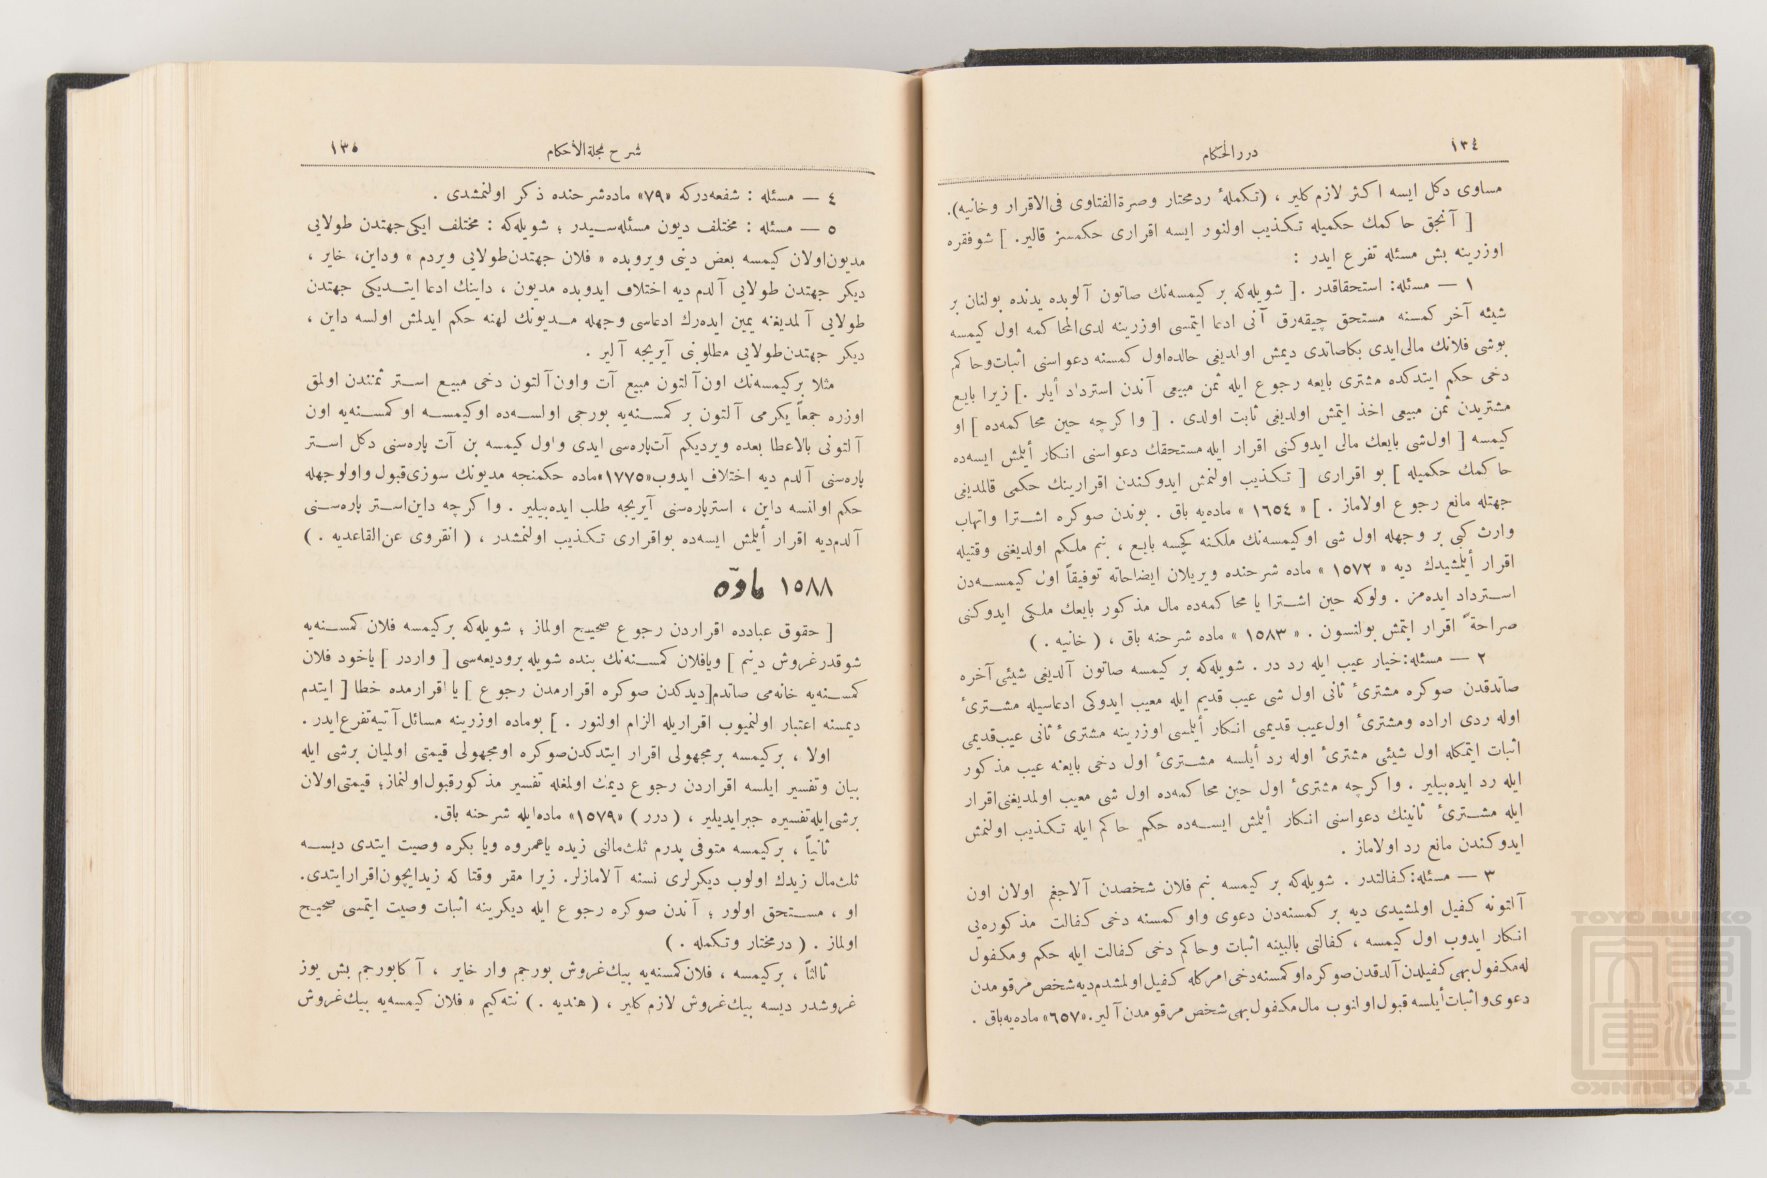 ١٣٤
درر الحكام
مساوى دكل ايسه اكثر لازم كلير ، (تكملۀ ردمختار وصرة الفتاوى فى الاقرار وخانيه).
[ آنجق حاكمك حكميله تكذيب اولنور ايسه اقرارى حكمسز قالير. ] شو فقره
اوزرينه بش مسئله تفرع ايدر :
١ — مسئله: استحقاقدر .[ شويله كه بر كيمسه نك صاتون آلوبده يدنده بولنان بر
شيئه آخر كمسنه مستحق چيقه رق آنى ادعا ايتمسى اوزرينه لدى المحاكمه اول كيمسه
بوشى فلانك مالى ايدى بكا صاتدى ديمش اولديغى حالده اول كمسنه دعواسنى اثبات وحاكم
دخى حكم ايتدكده مشترى بايعه رجوع ايله ثمن مبيعى آندن استرداد ايلر .] زيرا بايع
مشتريدن ثمن مبيعى اخذ ايتمش اولديغى ثابت اولدى . [ واكرچه حين محاكمه ده ] او
كيمسه [ اول شى بايعك مالى ايدوكنى اقرار ايله مستحقك دعواسنى انكار أيلمش ايسه ده
حاكمك حكميله ] بو اقرارى [ تكذيب اولنمش ايدوكندن اقرارينك حكمى قالمديغى
جهتله مانع رجوع اولاماز . ] « ١٦٥٤ » ماده يه باق . بوندن صوكره اشترا واتهاب
وارث كبى بر وجهله اول شى او كيمسه نك ملكنه كچسه بايع ، بنم ملكم اولديغنى وقتيله
اقرار أيلمشيدك ديه « ١٥٧٢ » ماده شرحنده ويريلان ايضاحاته توفيقاً اول كيمسه دن
استرداد ايده مز . ولوكه حين اشترا يا محاكمه ده مال مذكور بايعك ملكى ايدوكنى
صراحةً اقرار ايتمش بولنسون . « ١٥٨٣ » ماده شرحنه باق ، ( خانيه . )
٢ — مسئله:خيار عيب ايله رد در . شويله كه بر كيمسه صاتون آلديغى شيئى آخره
صاتدقدن صوكره مشترئ ثانى اول شى عيب قديم ايله معيب ايدوكى ادعاسيله مشترئ
اوله ردى اراده ومشترئ اول عيب قديمى انكار أيلمسى اوزرينه مشترئ ثانى عيب قديمى
اثبات ايتمكله اول شيئى مشترئ اوله رد أيلسه مشترئ اول دخى بايعنه عيب مذكور
ايله رد ايده بيلير . واكرچه مشترئ اول حين محاكمه ده اول شى معيب اولمديغنى اقرار
ايله مشترئ ثانينك دعواسنى انكار أيلمش ايسه ده حكم حاكم ايله تكذيب اولنمش
ايدوكندن مانع رد اولاماز .
٣ — مسئله:كفالتدر . شويله كه بر كيمسه بنم فلان شخصدن آلاجغم اولان اون
آلتونه كفيل اولمشيدى ديه بر كمسنه دن دعوى واو كمسنه دخى كفالت مذكوره يى
انكار ايدوب اول كيمسه ، كفالتى بالبينه اثبات وحاكم دخى كفالت ايله حكم ومكفول
له مكفول بهى كفيلدن آلدقدن صوكره او كمسنه دخى امركله كفيل اولمشدم ديه شخص مرقومدن
دعوى واثبات أيلسه قبول اولنوب مال مكفول بهى شخص مرقومدن آلير. «٦٥٧» ماده يه باق .
١٣٥
شرح مجلة الأحكام
٤ — مسئله : شفعه دركه «٧٩» ماده شرحنده ذكر اولنمشدى .
٥ — مسئله : مختلف ديون مسئله سيدر ؛ شويله كه : مختلف ايكى جهتدن طولايى
مديون اولان كيمسه بعض دينى ويروبده « فلان جهتدن طولايى ويردم » وداين، خاير ،
ديكر جهتدن طولايى آلدم ديه اختلاف ايدوبده مديون ، داينك ادعا ايتديكى جهتدن
طولايى آلمديغنه يمين ايده رك ادعاسى وجهله مديونك لهنه حكم ايدلمش اولسه داين ،
ديكر جهتدن طولايى مطلوبنى آيريجه آلير .
مثلا بر كيمسه نك اون آلتون مبيع آت واون آلتون دخى مبيع استر ثمنندن اولمق
اوزره جمعاً يكرمى آلتون بر كمسنه يه بورجى اولسه ده او كيمسه او كمسنه يه اون
آلتونى بالاعطا بعده ويرديكم آت پاره سى ايدى و اول كيمسه بن آت پاره سنى دكل استر
پاره سنى آلدم ديه اختلاف ايدوب «١٧٧٥» ماده حكمنجه مديونك سوزى قبول و اولوجهله
حكم اولنسه داين ، استر پاره سنى آيريجه طلب ايده بيلير . واكرچه داين استر پاره سنى
آلدم ديه اقرار أيلمش ايسه ده بو اقرارى تكذيب اولنمشدر ، ( انقروى عن القاعديه . )
١٥٨٨ مادّه
[ حقوق عبادده اقراردن رجوع صحيح اولماز ؛ شويله كه بر كيمسه فلان كمسنه يه
شوقدر غروش دينم ] ويا فلان كمسنه نك بنده شويله بر وديعه سى [ واردر ] ياخود فلان
كمسنه يه خانه مى صاتدم [ ديدكدن صوكره اقرارمدن رجوع ] يا اقرارمده خطا [ ايتدم
ديمسنه اعتبار اولنميوب اقراريله الزام اولنور . ] بوماده اوزرينه مسائل آتيه تفرع ايدر .
اولا ، بر كيمسه بر مجهولى اقرار ايتدكدن صوكره او مجهولى قيمتى اولميان برشى ايله
بيان وتفسير ايلسه اقراردن رجوع ديمك اولمغله تفسير مذكور قبول اولنماز؛ قيمتى اولان
برشى ايله تفسيره جبر ايديلير ، ( درر ) «١٥٧٩» ماده ايله شرحنه باق.
ثانياً ، بر كيمسه متوفى پدرم ثلث مالنى زيده ياعمروه ويا بكره وصيت ايتدى ديسه
ثلث مال زيدك اولوب ديكرلرى نسنه آلامازلر. زيرا مقر وقتا كه زيد ايچون اقرار ايتدى.
او ، مستحق اولور ؛ آندن صوكره رجوع ايله ديكرينه اثبات وصيت ايتمسى صحيح
اولماز . ( درمختار وتكمله . )
ثالثاً ، بر كيمسه ، فلان كمسنه يه بيك غروش بورجم وار خاير ، آكا بورجم بش يوز
غروشدر ديسه بيك غروش لازم كلير ، ( هنديه . ) نته كيم « فلان كيمسه يه بيك غروش
TOYO BUNKO
TOYO BUNKO